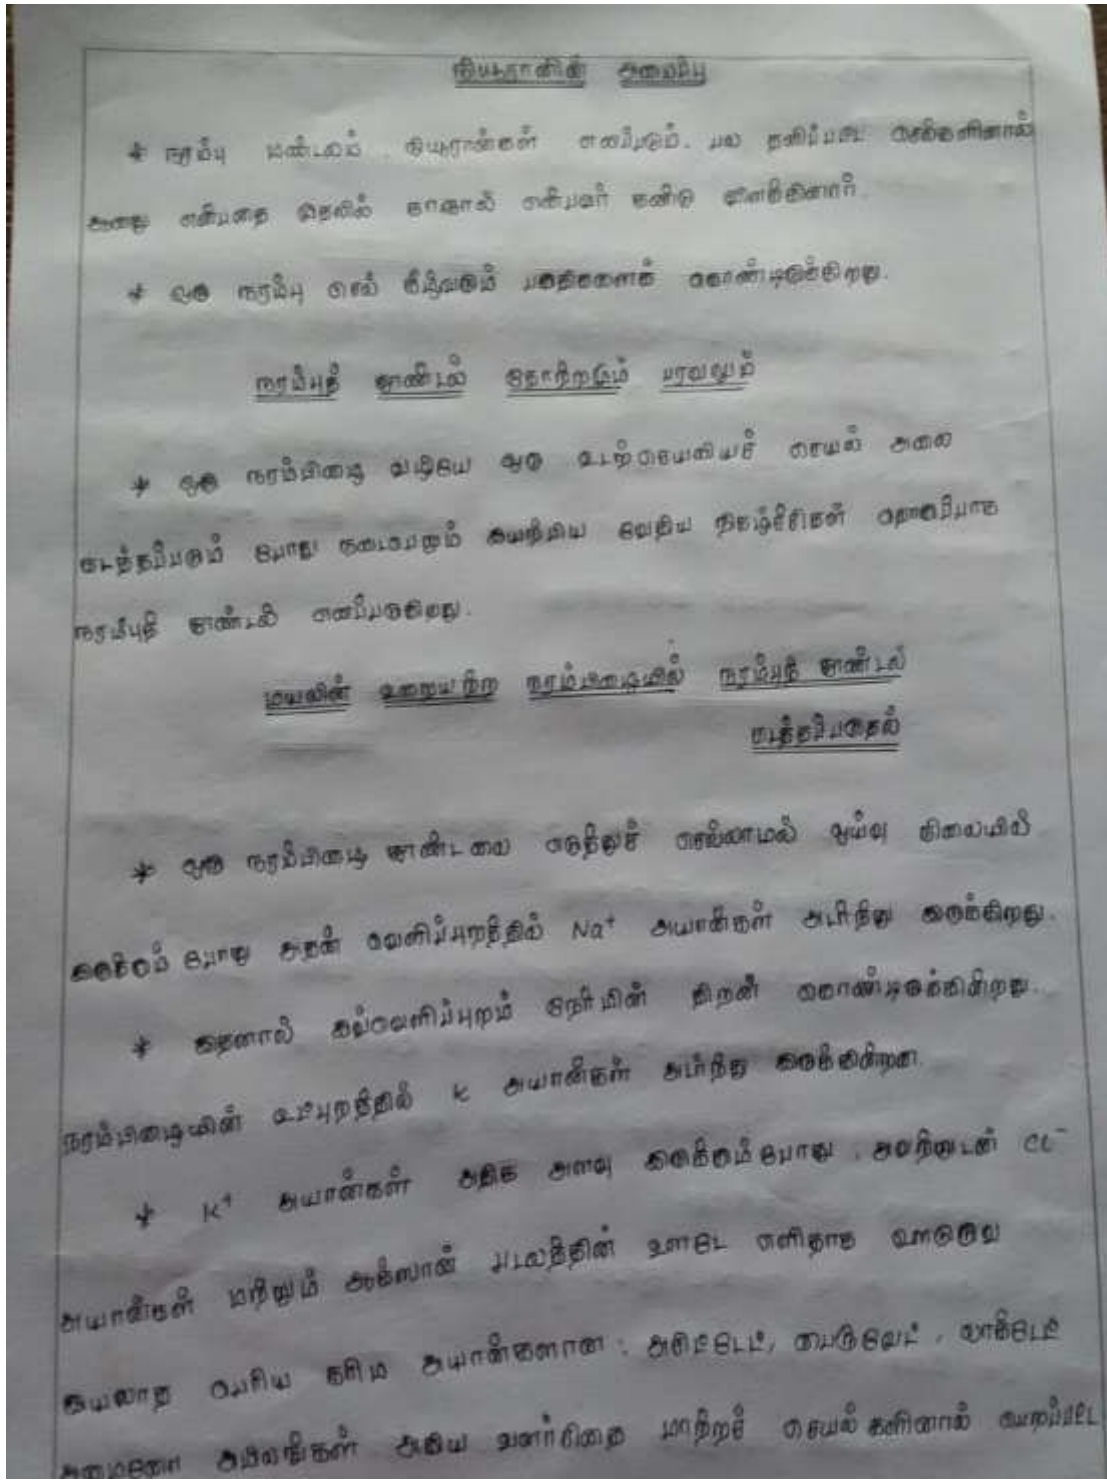 நியூரானின் அமைப்பு
* நரம்பு மண்டலம் நியூரான்கள் எனப்படும். பல தனிப்பட்ட செல்களினால்
ஆனது என்பதை முதலில் காஜால் என்பவர் கண்டு விளக்கினார்.
* ஒரு நரம்பு செல் கீழ்வரும் பகுதிகளைக் கொண்டிருக்கிறது.
நரம்புத் தூண்டல் தோற்றமும் பரவலும்
* ஒரு நரம்பிழை வழியே ஒரு உடற்செயலியச் செயல் அலை
கடத்தப்படும் போது நடைபெறும் இயற்பிய வேதிய நிகழ்ச்சிகள் தொகுப்பாக
நரம்புத் தூண்டல் எனப்படுகிறது.
மயலின் உறையற்ற நரம்பிழையில் நரம்புத் தூண்டல்
கடத்தப்படுதல்
* ஒரு நரம்பிழை தூண்டலை எடுத்துச் செல்லாமல் ஓய்வு நிலையில்
இருக்கும் போது அதன் வெளிப்புறத்தில் Na⁺ அயான்கள் அடர்ந்து இருக்கிறது.
* இதனால் இவ்வெளிப்புறம் நேர்மின் திறன் கொண்டிருக்கின்றது.
நரம்பிழையின் உட்புறத்தில் K அயான்கள் அடர்ந்து இருக்கின்றன.
* K⁺ அயான்கள் அதிக அளவு இருக்கும்போது, அவற்றுடன் Cl⁻
அயான்கள் மற்றும் ஆக்ஸான் படலத்தின் ஊடே எளிதாக ஊடுருவ
இயலாத பெரிய கரிம அயான்களான: அசிட்டேட், பைருவேட், லாக்டேட்
அமினோ அமிலங்கள் ஆகிய வளர்சிதை மாற்றச் செயல்களினால் பெறப்பட்ட